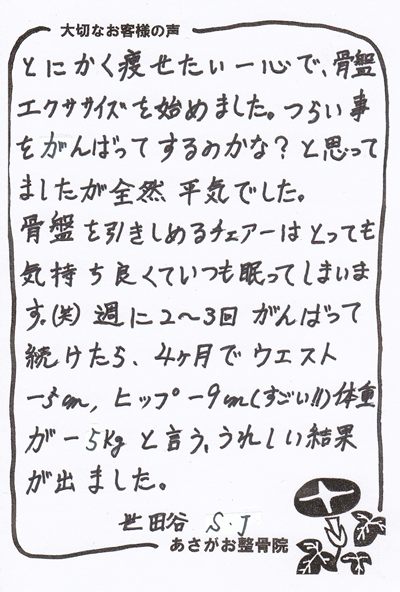 大切なお客様の声
とにかく痩せたい一心で、骨盤
エクササイズを始めました。つらい事
をがんばってするのかな?と思って
ましたが全然 平気でした。
骨盤を引きしめるチェアーはとっても
気持ち良くていつも眠ってしまいま
す。(笑) 週に2〜3回 がんばって
続けたら、4ヶ月でウエスト
-5cm, ヒップ-9cm(すごい!!)体重
が-5kgと言う、うれしい結果
が出ました。
世田谷 S・J
あさがお整骨院